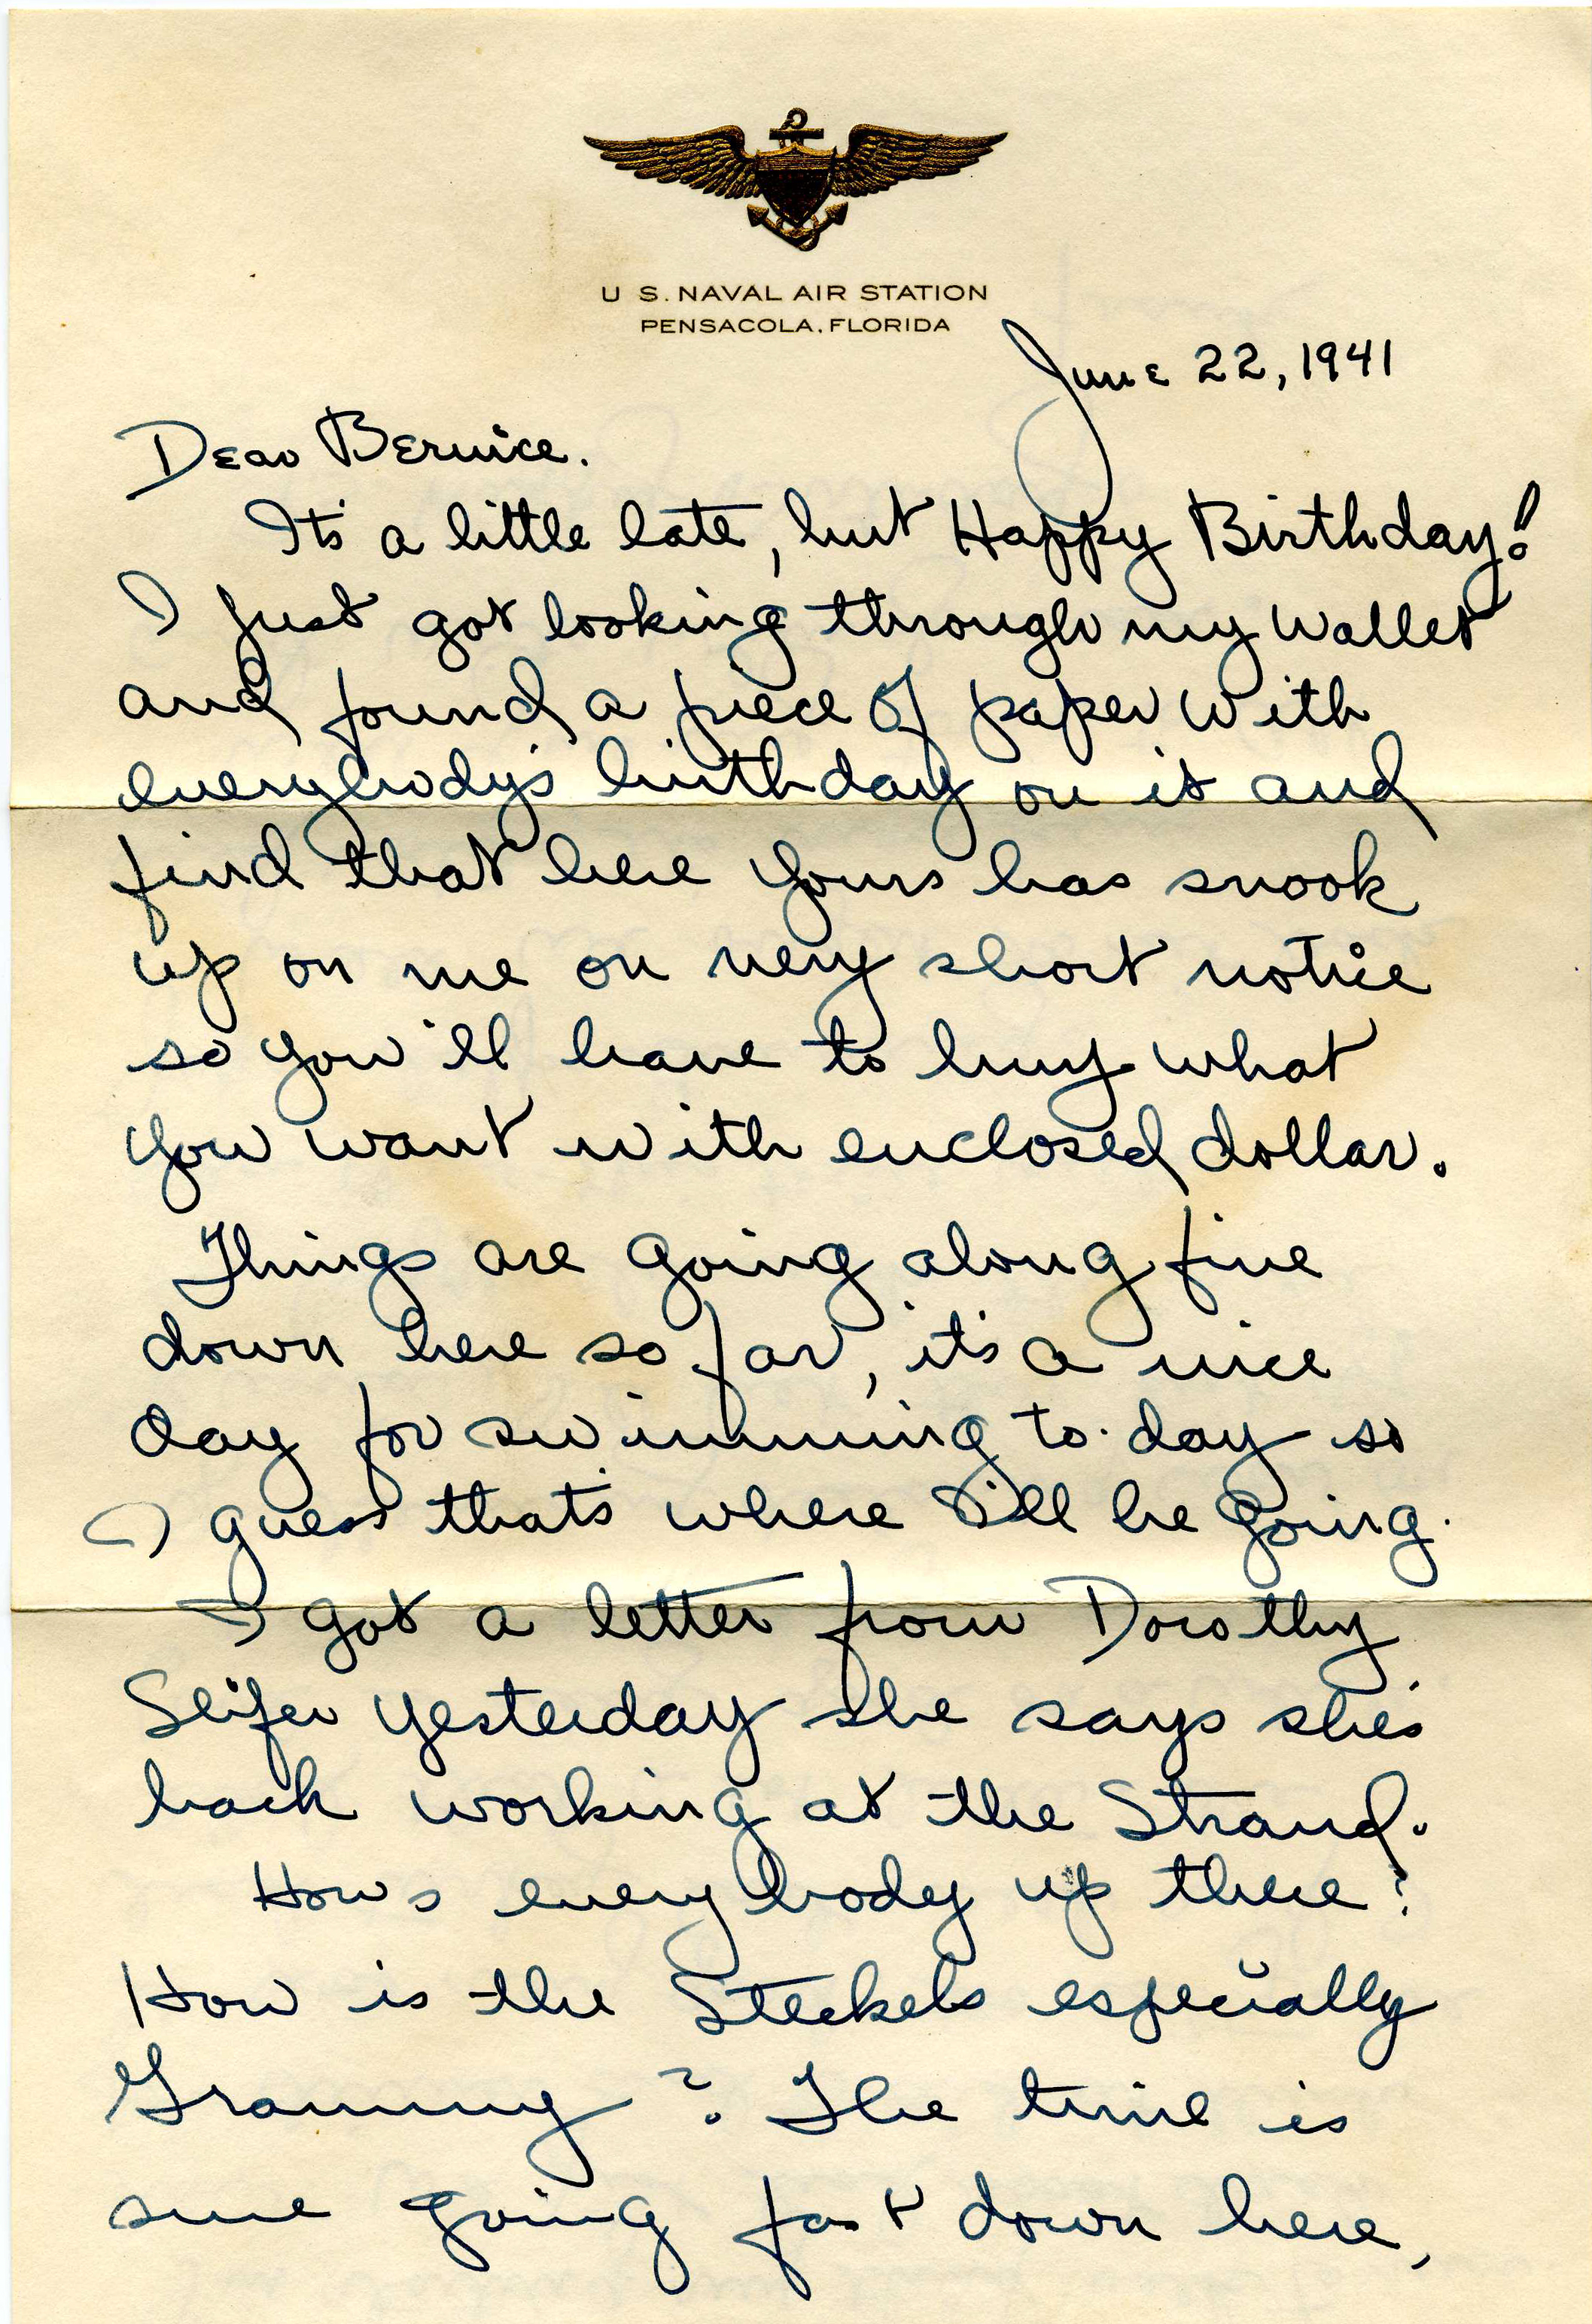 U S. NAVAL AIR STATION
PENSACOLA, FLORIDA
June 22, 1941
Dear Bernice.
It's a little late, but Happy Birthday!
I just got looking through my wallet
and found a piece of paper with
everybody's birthday on it and
find that here yours has snook
up on me on very short notice
so you'll have to buy what
you want with enclosed dollar.
Things are going along fine
down here so far, it's a nice
day for swimming to-day so
I guess that's where I'll be going.
I got a letter from Dorothy
Slifer yesterday she says she's
back working at the Strand.
Hows everybody up there?
How is the Steckels especially
Grammy? The time is
sure going fast down here,